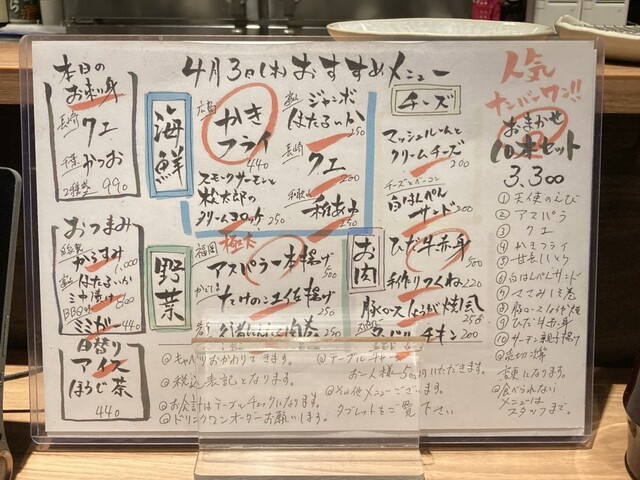 4月3日(水)おすすめメニュー
本日の
お刺身
長崎 クエ
千葉 かつお
2種盛 990
おつまみ
自家製
からすみ 1,000
富山 ほたるいか
ミソ漬け 800
BBQ
ミミガー 440
日替り
アイス
ほうじ茶
440
海鮮
広島 かき
フライ
440
スモークサーモンと
松太郎の
クリームコロッケ 250
富山 ジャンボ
ほたるいか
250
長崎 クエ
200
和歌山
250
野菜
極太
福岡 アスパラ一本揚げ
500
かごしま たけのこ土佐揚げ
250
チーズ
マッシュルームと
クリームチーズ
200
チーズとベーコン
白はんぺん
サンド 200
お肉
ひだ牛赤身
500
手作りつくね 220
豚ロースしょうが焼風
250
チキン 200
人気
ナンバーワン!!
おまかせ
10本セット
3,300
①天使のえび
②アスパラ
③クエ
④かきフライ
⑤甘長しいたけ
⑥白はんぺんサンド
⑦ささみしそ巻
⑧豚ロースしょうが焼
⑨ひだ牛赤身
⑩サーモン親子揚げ
◎売切次第
変更になります。
◎食べられない
メニューは
スタッフまで。
◎キャベツおかわりできます。
◎税込表記となります。
◎お会計はテーブルチェックになります。
◎ドリンクワンオーダーお願いします。
◎テーブルチャージ
お一人様 500円いただきます。
◎その他メニューございます。
タブレットをご覧下さい